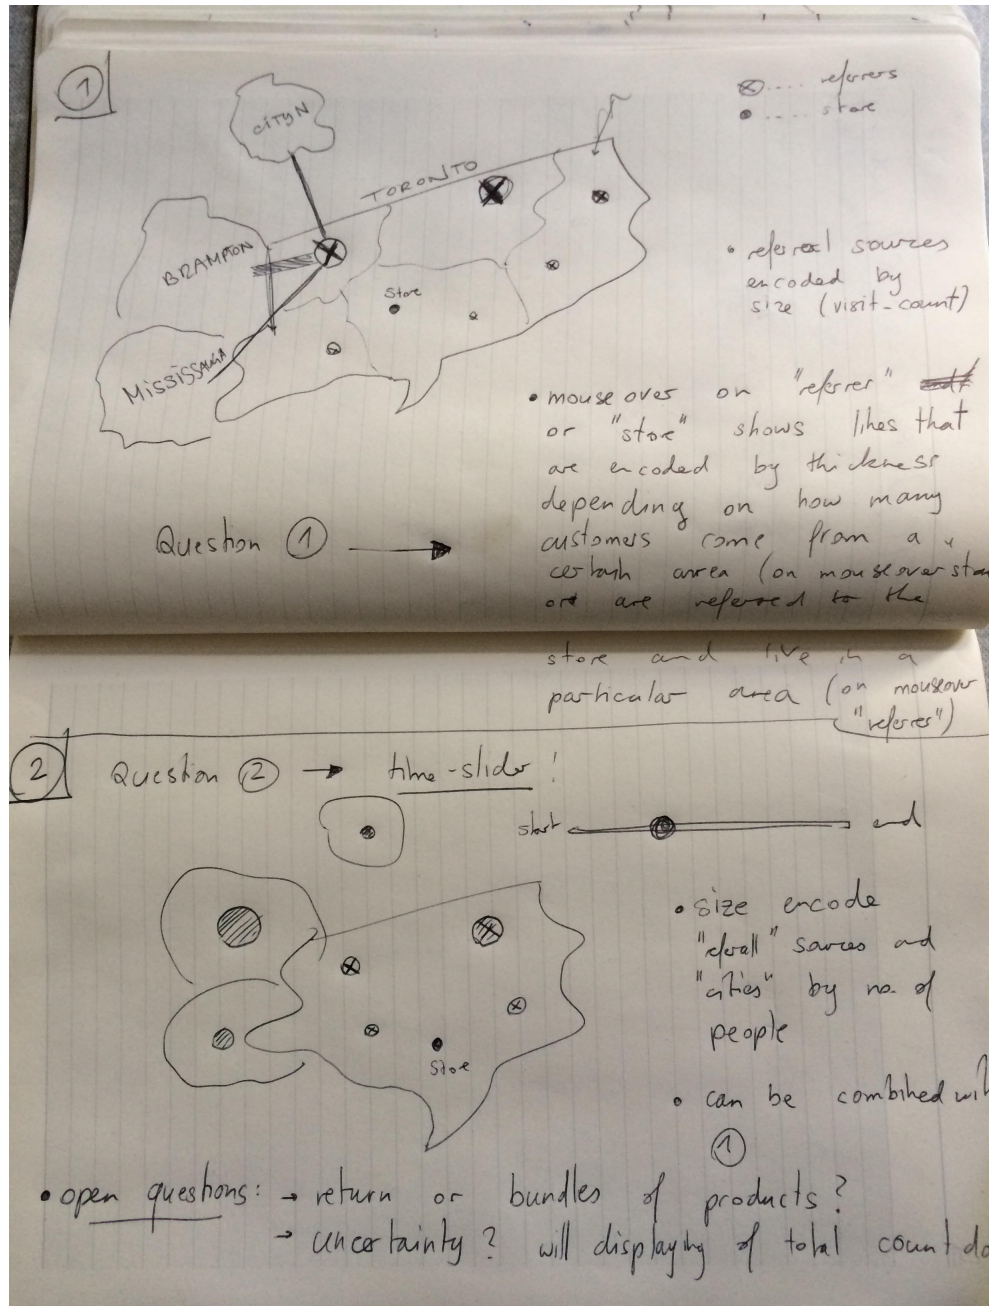 1
⊗ .... referrers
● .... store
CITY N
TORONTO
BRAMPTON
Store
MISSISSAUGA
• referral sources
encoded by
size (visit-count)
• mouse over on "referrer"
or "store" shows lines that
are encoded by thickness
depending on how many
customers come from a
certain area (on mouseover
or are referred to the
store and live in a
particular area (on mouseover
"referrer")
Question ① →
2
Question ② → time-slider!
start
end
• size encode
"referall" sources and
"cities" by no. of
people
Store
• can be combined
①
• open questions: → return or bundles of products?
→ uncertainty? will displaying of total count do